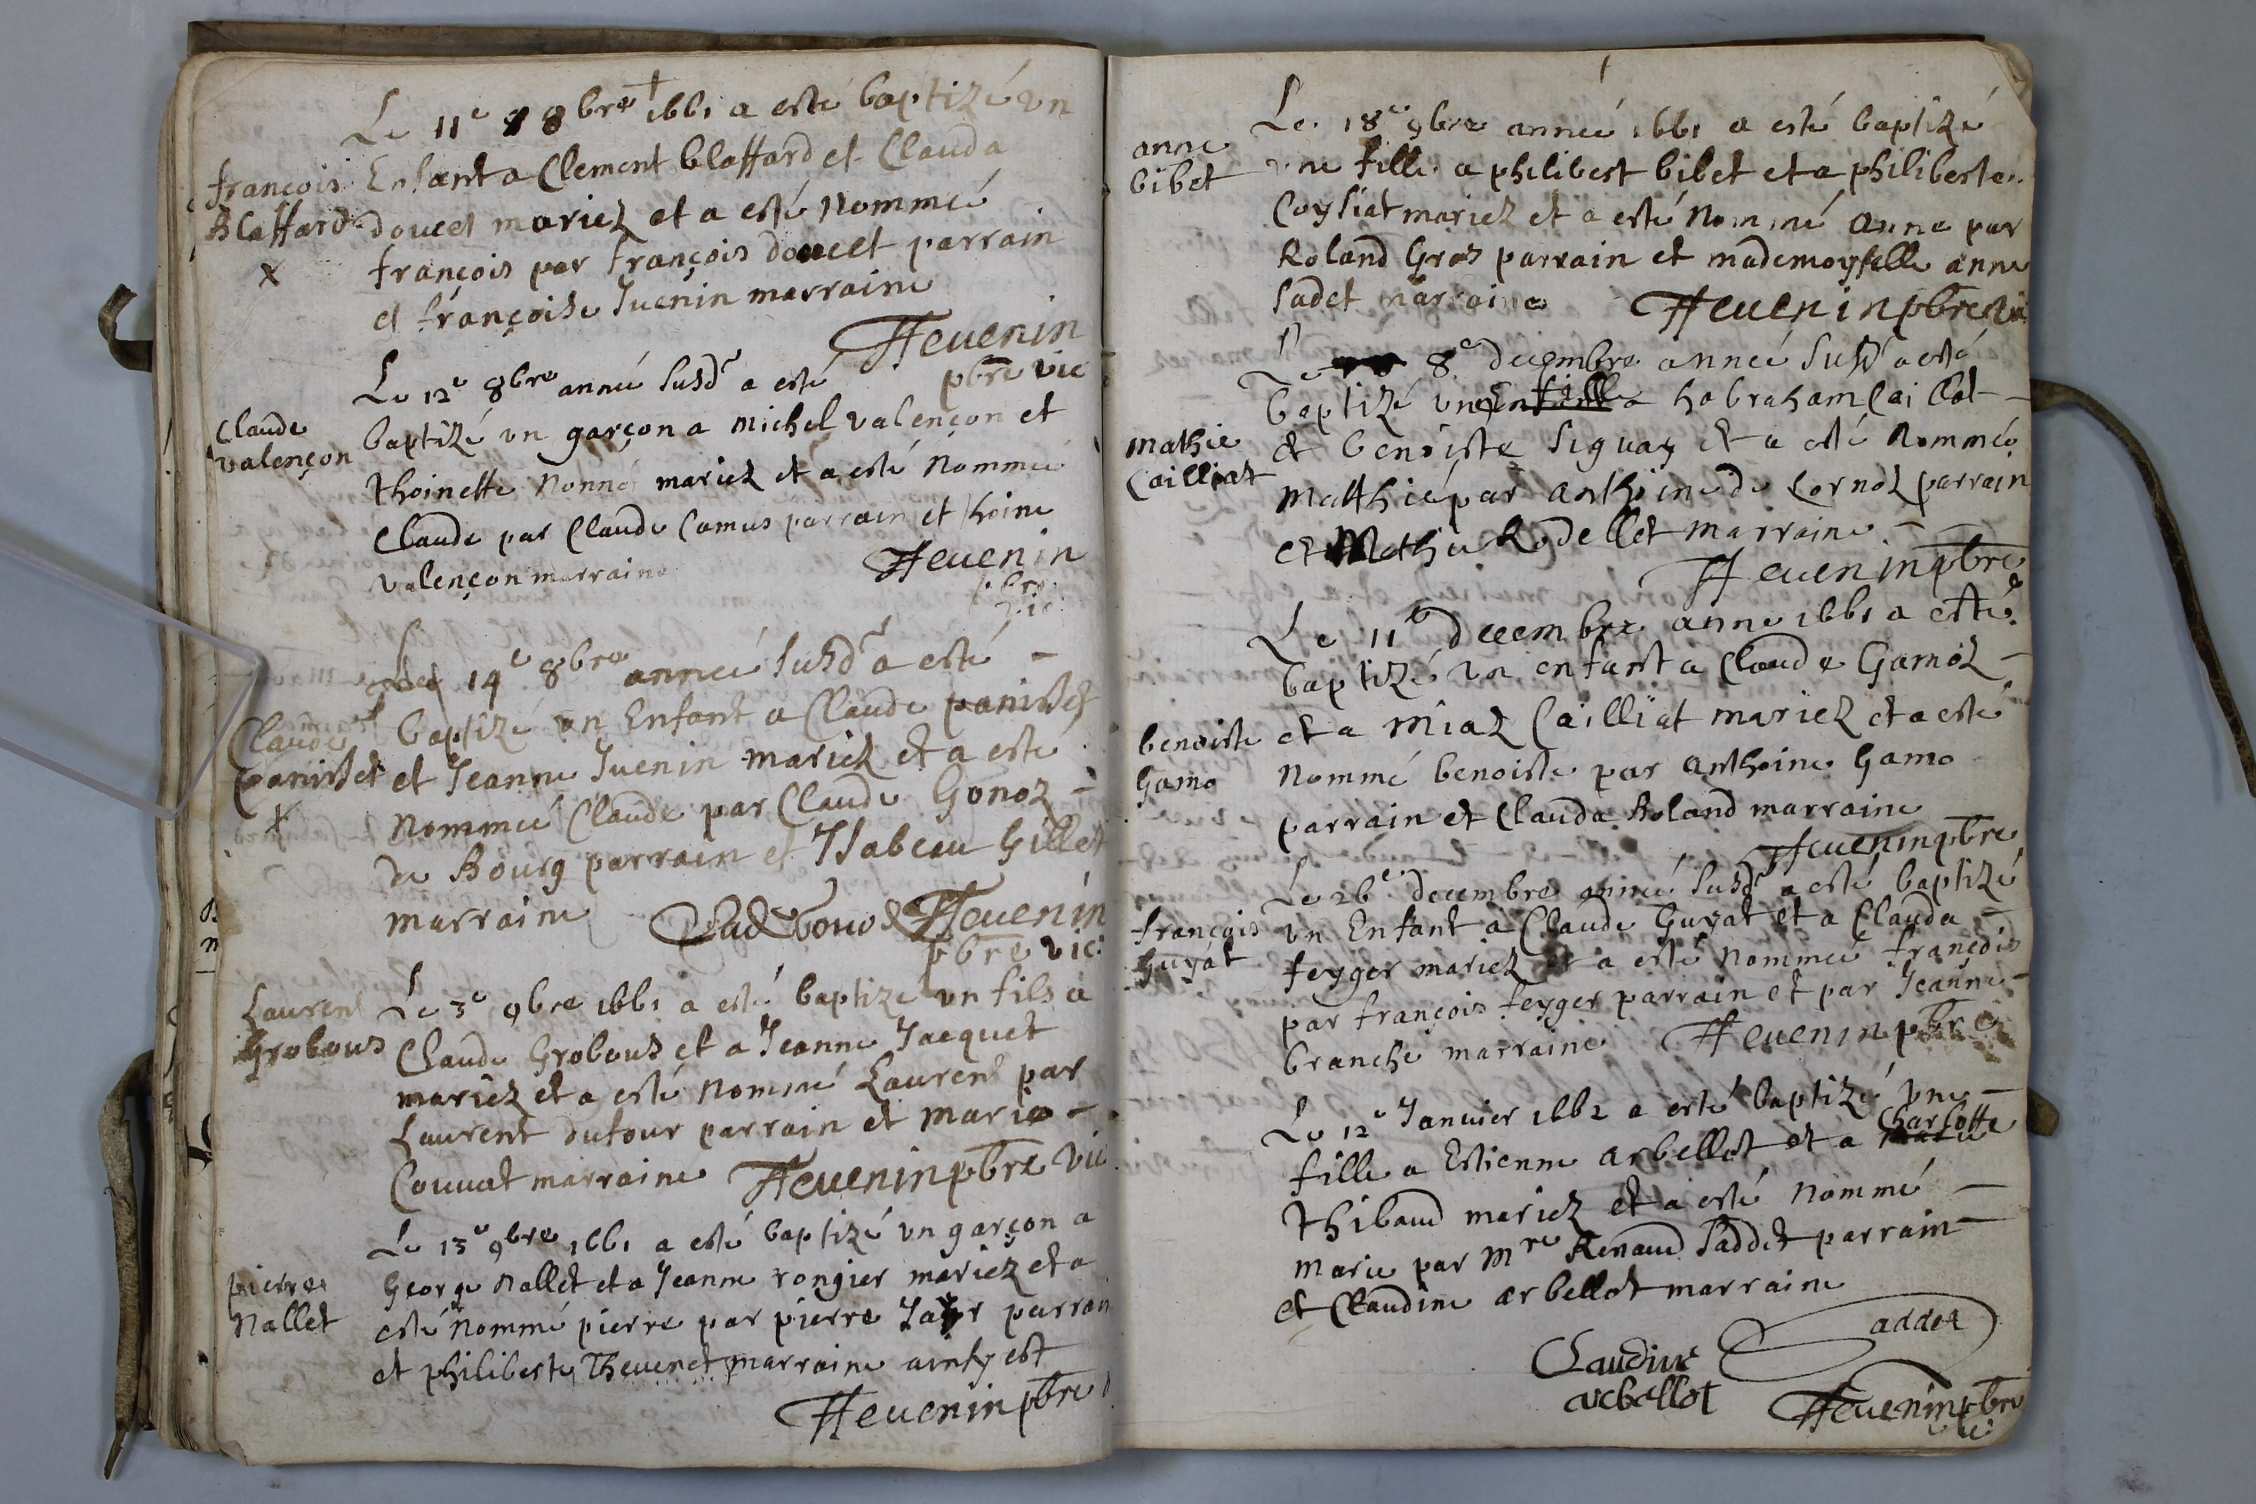 Le 11e 8bre 1661 a esté baptizé vn
françois Enfant a Clement blaffard et Clauda
Blaffard doucet mariez et a esté Nommeé
x françois par françois doucet parrain
et françoise Juenin marraine
Theuenin
pbre vic
Le 12e 8bre anneé Susdt a esté
Claude baptizé vn garçon a Michel valençon et
valençon Thoinette Nonne mariez et a esté Nommeé
Claude par Claude Camus parrain et Thoine
valençon marraine Theuenin
pbre
vic
Le 14e 8bre anneé Susdt a esté
Claude baptizé vn Enfant a Claude panisset
panisset et Jeanne Juenin mariez et a esté
x Nommeé Claude par Claude Gonoz
de Bourg parrain et Isabeau Gillet
marraine Theuenin
pbre vic:
Laurent Le 3e 9bre 1661 a esté baptizé vn fils a
Grobous Claude Grobous et a Jeanne Jacquet
mariez et a esté Nommé Laurent par
Laurent dufour parrain et marie
Couuat marraine Theuenin pbre vic
Le 13e 9bre 1661 a esté baptizé vn garçon a
pierre George Nallet et a Jeanne rongier mariez et a
Nallet esté Nommé pierre par pierre Jayr parrain
et philiberte Theuenet marraine ainsy est
Theuenin pbre
Le 18e 9bre anneé 1661 a esté baptizé
anne vne fille a philibert bibet et a philiberte
bibet Coysiat mariez et a esté Nommé anne par
Roland Gros parrain et mademoyselle anne
Sadet marraine Theuenin pbre vic
Le 8e decembre anneé Susdt a esté
baptizé vne fille a habraham Caillat
mathie et benoiste Siguay et a esté Nommeé
Cailliat matthie par anthoine de Cornoz parrain
et Mathie Rodellet marraine
Theuenin pbre
Le 11e decembre anne 1661 a esté
baptizé vn enfant a Claude Gamoz
benoiste et a Miaz Cailliat mariez et a esté
Gamo Nommé benoiste par anthoine Gamo
parrain et Clauda Roland marraine
Theuenin pbre
Le 26e decembre anneé Susdt a esté baptizé
françois vn Enfant a Claude Guyat et a Clauda
Guyat feyger mariez et a esté Nommeé françois
par françois feyger parrain et par Jeanne
branche marraine Theuenin pbre
Le 12e Januier 1662 a esté baptizé vne
fille a Estienne arbellot et a Charlotte
Thibaud mariez et a esté Nommé
Marie par Mre Renaud Saddet parrain
et Claudine arbellot marraine
Saddet
Claudine
arbellot
Theuenin pbre
vic: